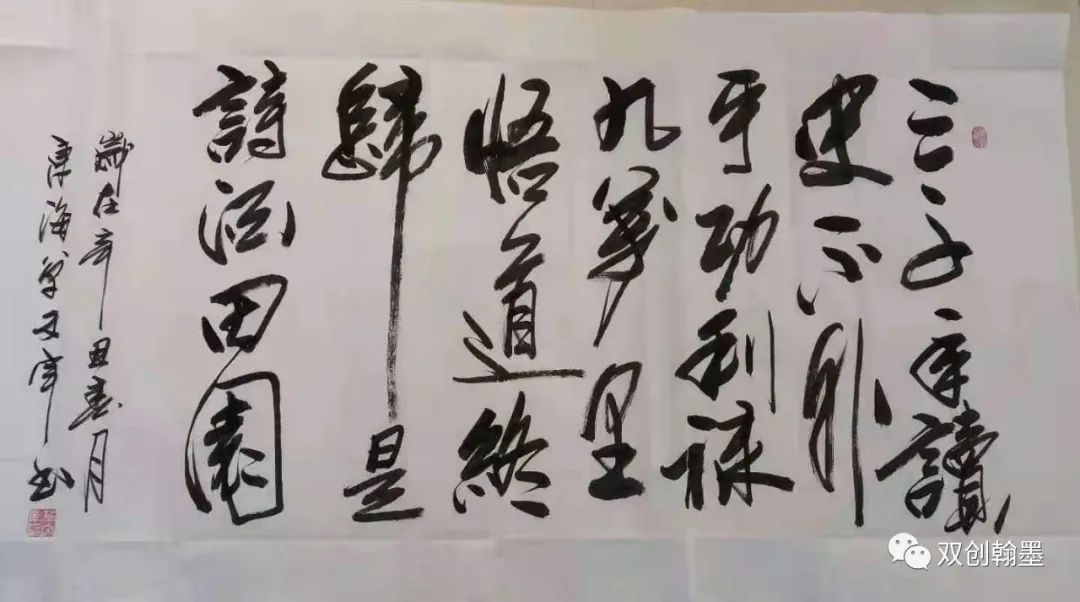 三千年讀
史不外
乎功利祿
九萬里
悟道終
歸是
詩酒田園
歲在辛丑春月
海文书
双创翰墨